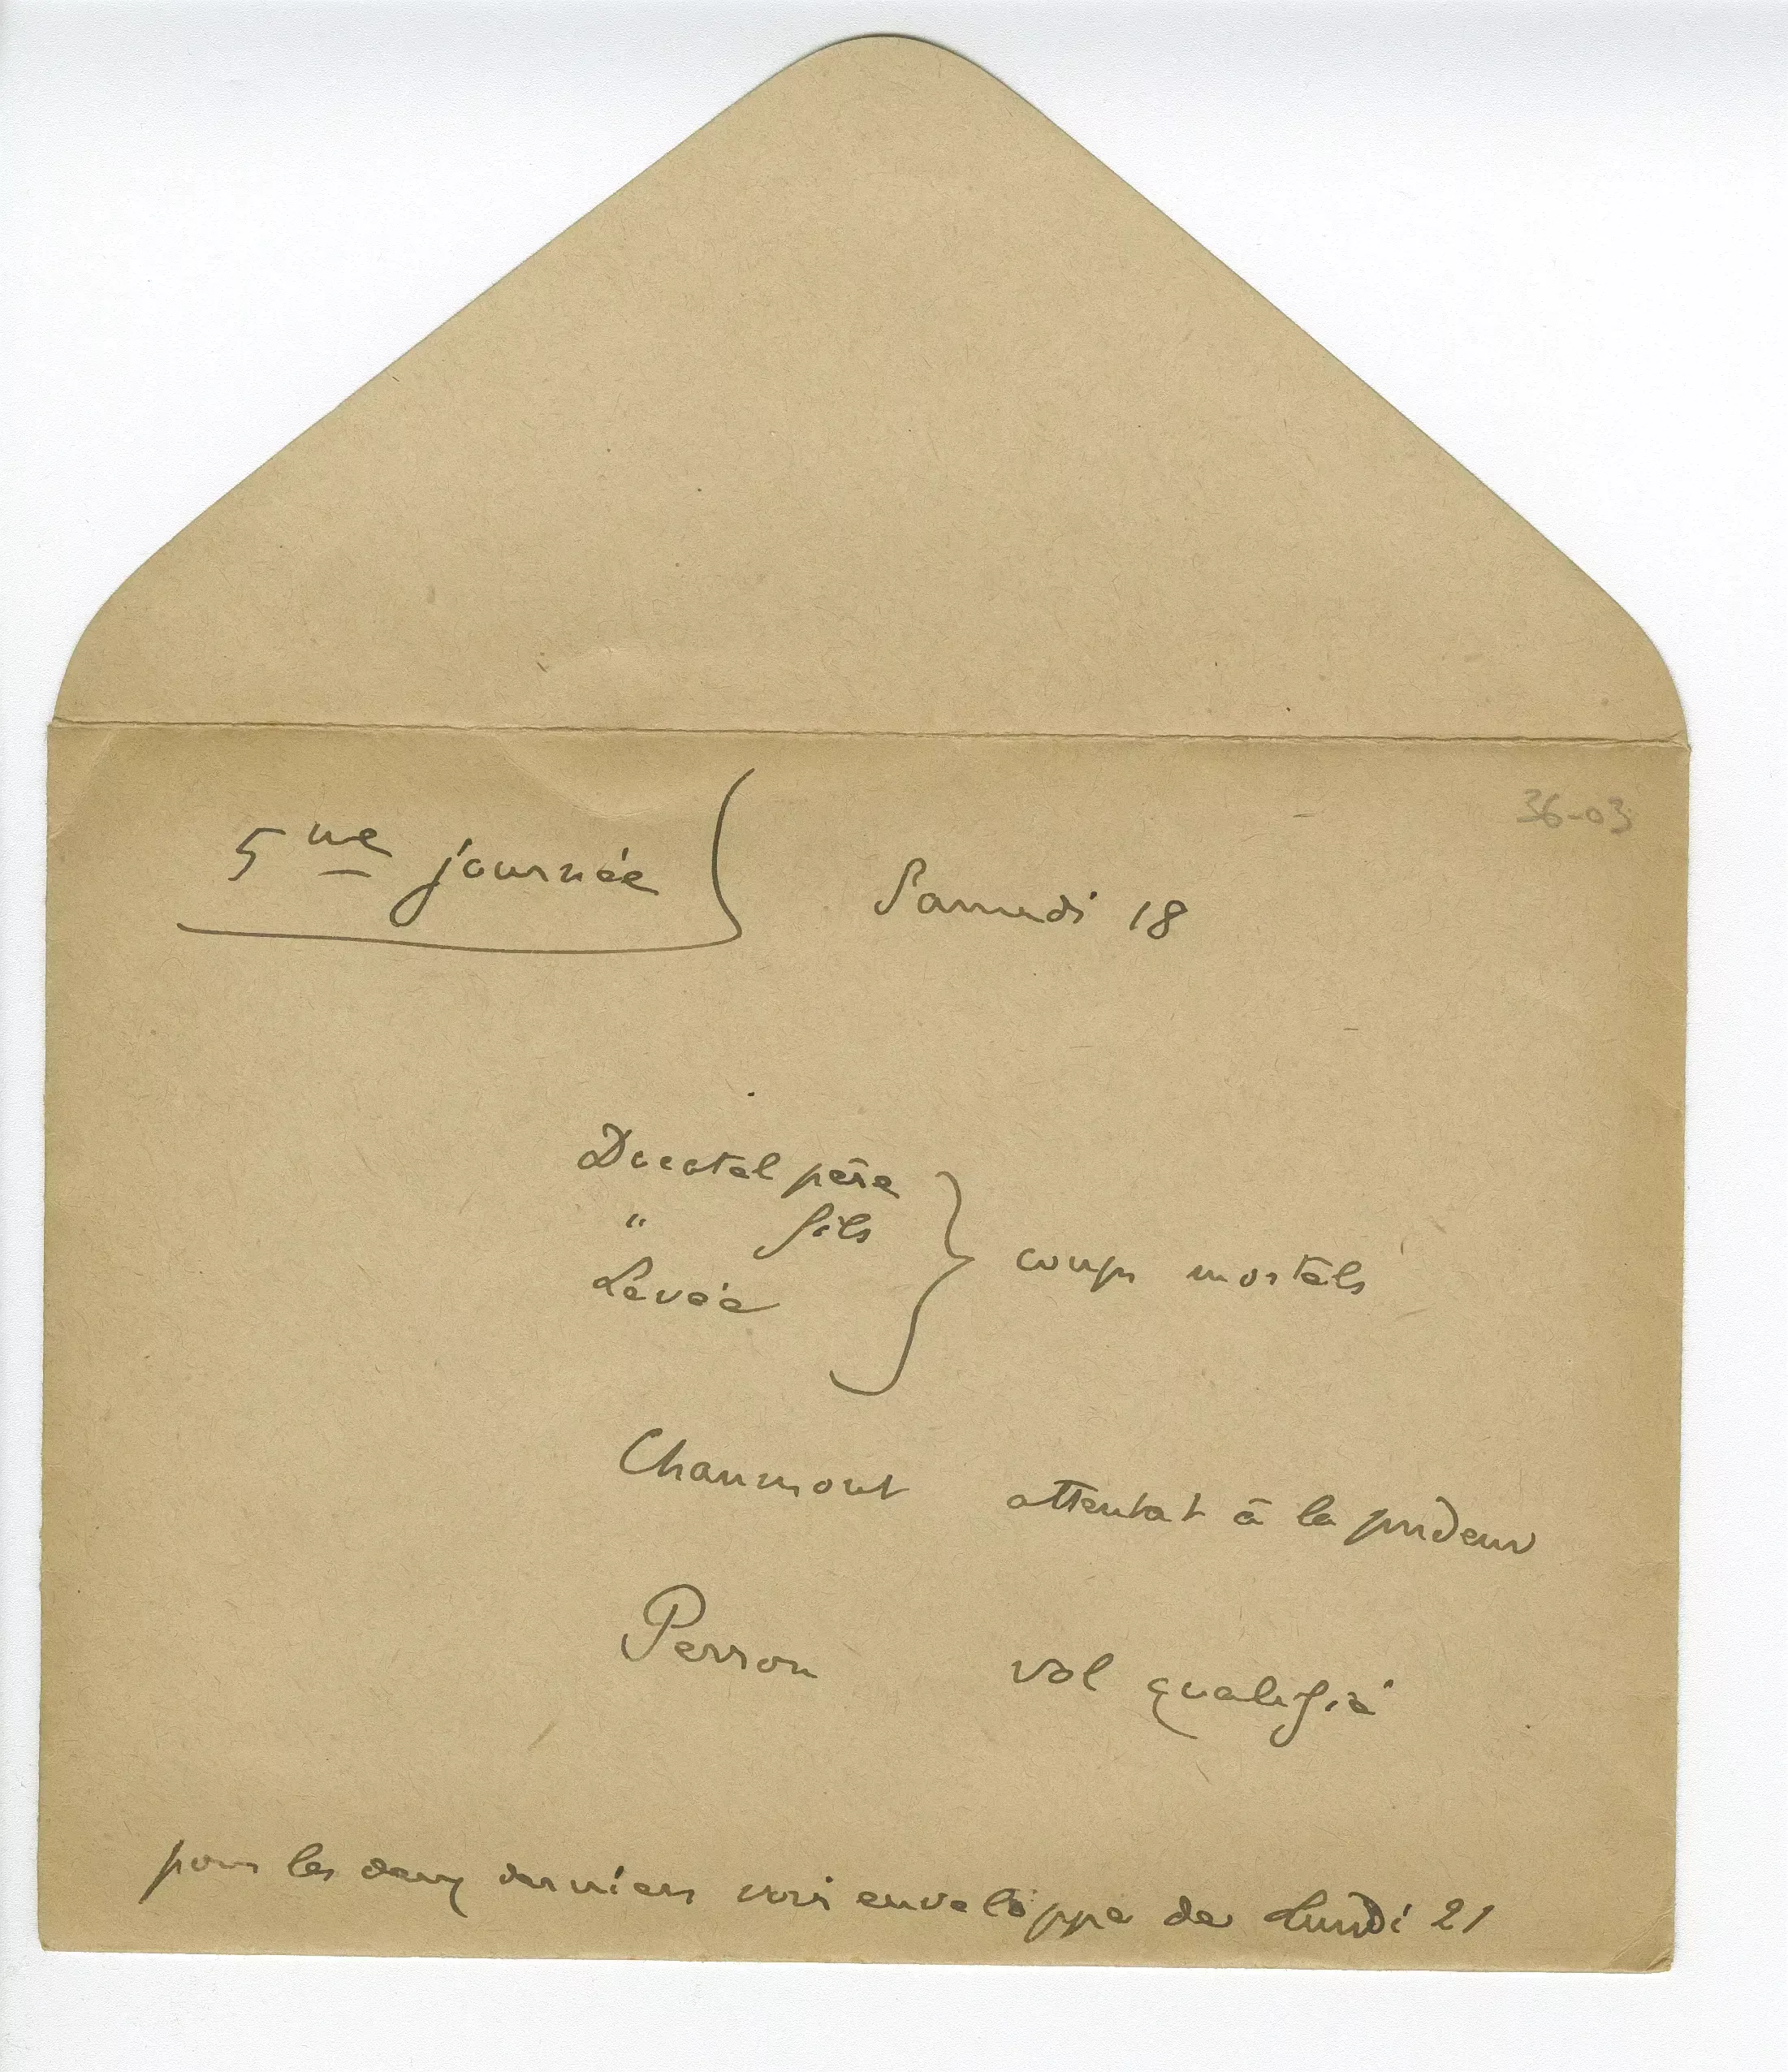 36-03
5me journée Samedi 18
Ducatel père
" fils
Levée
coups mortels
Chaumont attentat à la pudeur
Perron vol qualifié
pour les deux derniers voir enveloppe de Lundi 21